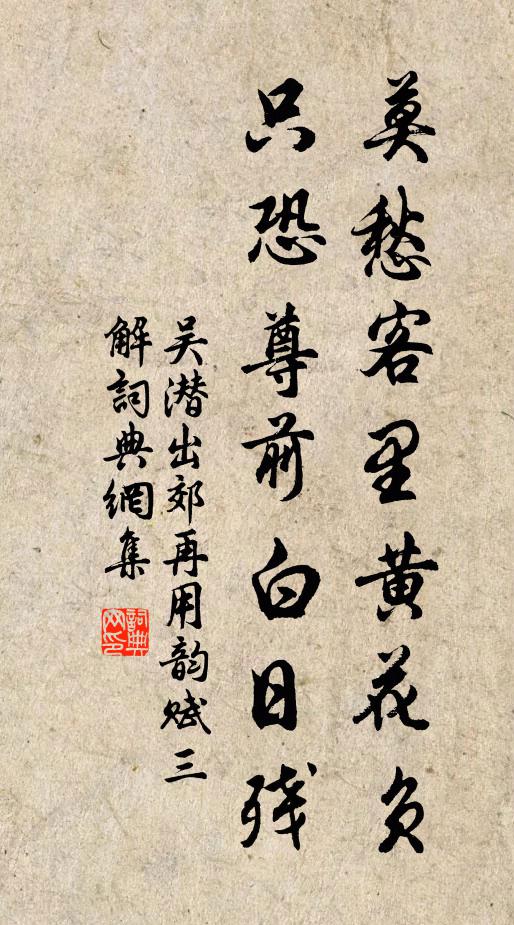 莫愁客里黄花负
只恐尊前白日残
吴潜出郊再用韵赋三
解詞典網集
詞典
网印